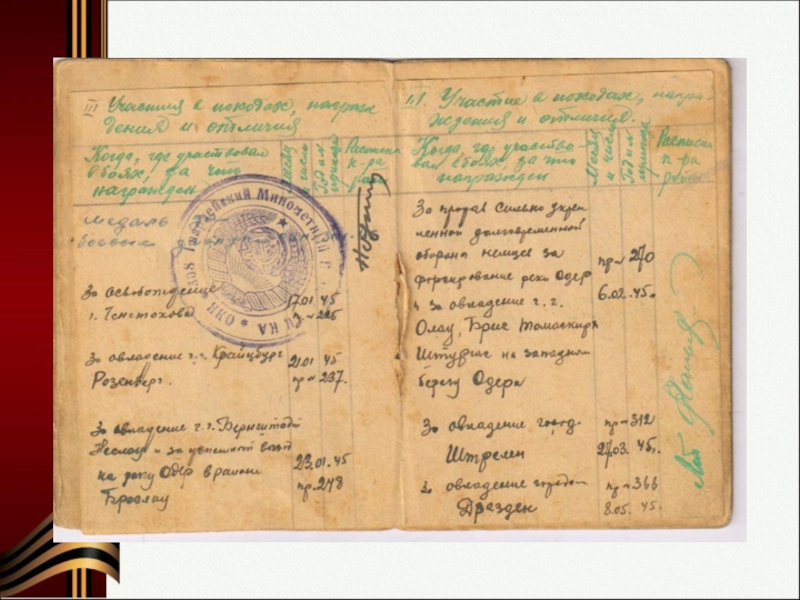 III Участия в походах, награж
дения и отличия
Когда, где участвовал
в боях, за что
награжден
Место
и число
Год и №
приказа
Расписка
к-ра
медаль
боевые
Гвардейский Минометный
НКО
За освобождение
г. Ченстохова
17.01 45
пр № 226
За овладение г.г. Крайцбург
Розенберг.
21.01 45
пр № 237.
За овладение г.г. Бернштадт
Намслау и за успешный выход
на реку Одер в районе
Бреслау
23.01.45
пр. 248
III. Участие в походах, награ-
ждения и отличия.
Когда, где участво-
вал в боях, за что
награжден
Место
и число
Год и №
приказа
Расписка
к-ра
За прорыв сильно укреп
ленной долговременной
обороны немцев за
форсирование реки Одер
и за овладение г.г.
Олау, Бриг Томаскирх
на западном
берегу Одера
пр № 270
6.02.45г.
За овладение город.
Штрелен
пр № 312
27.03. 45г.
За овладение городом
Дрезден
пр № 366
8.05. 45г.